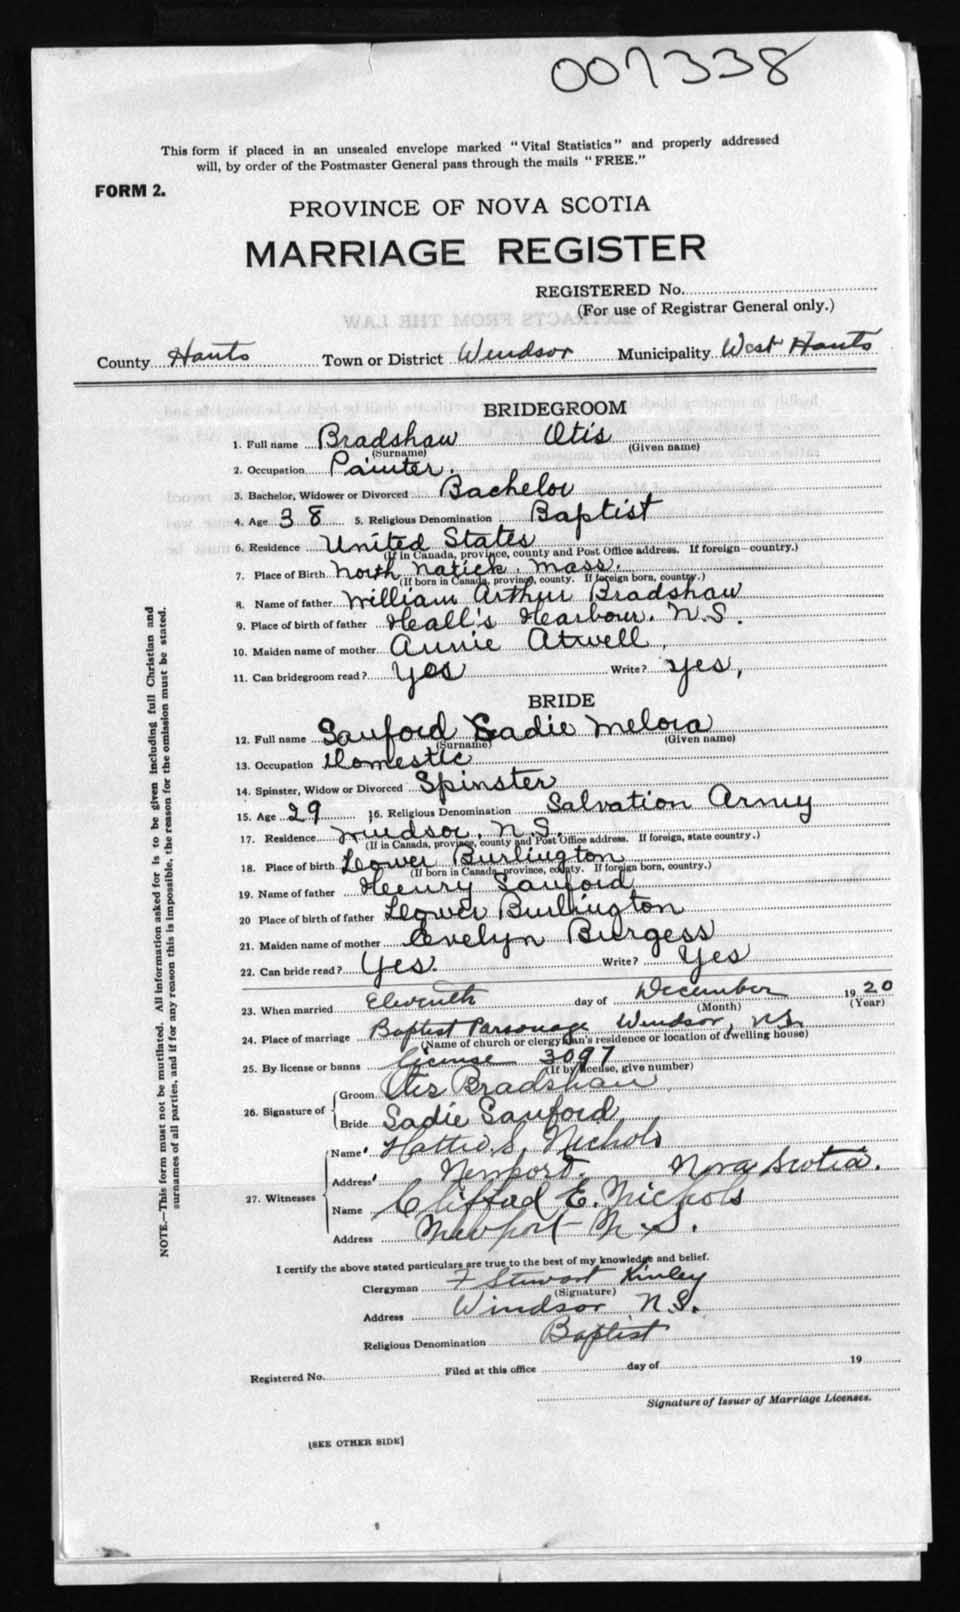 007338
This form if placed in an unsealed envelope marked "Vital Statistics" and properly addressed
will, by order of the Postmaster General pass through the mails "FREE."
FORM 2.
PROVINCE OF NOVA SCOTIA
MARRIAGE REGISTER
REGISTERED No.
(For use of Registrar General only.)
EXTRACTS FROM THE LAW
County Hants Town or District Windsor Municipality West Hants
BRIDEGROOM
1. Full name Bradshaw Otis
(Surname) (Given name)
2. Occupation Painter.
3. Bachelor, Widower or Divorced Bachelor
4. Age 38 5. Religious Denomination Baptist
6. Residence United States
(If in Canada, province, county and Post Office address. If foreign—country.)
7. Place of Birth North Natick. Mass.
(If born in Canada, province, county. If foreign born, country.)
8. Name of father William Arthur Bradshaw
9. Place of birth of father Heall's Hearbour. N.S.
10. Maiden name of mother Annie Atwell,
11. Can bridegroom read? Yes Write? Yes,
BRIDE
12. Full name Sanford Sadie Melora
(Surname) (Given name)
13. Occupation Domestic
14. Spinster, Widow or Divorced Spinster
15. Age 29 16. Religious Denomination Salvation Army
17. Residence Windsor. N.S.
(If in Canada, province, county and Post Office address. If foreign, state country.)
18. Place of birth Lower Burlington
(If born in Canada, province, county. If foreign born, country.)
19. Name of father Henry Sanford
20 Place of birth of father Lower Burlington
21. Maiden name of mother Evelyn Burgess
22. Can bride read? Yes. Write? Yes
23. When married Eleventh day of December 1920
(Month) (Year)
24. Place of marriage Baptist Parsonage Windsor, N.S.
(Name of church or clergyman's residence or location of dwelling house)
25. By license or banns license 3097
(If by license, give number)
26. Signature of Groom Otis Bradshaw
Bride Sadie Sanford
27. Witnesses Name Hattie S. Nichols
Address Newport. Nova Scotia.
Name Clifford E. Nichols
Address Newport N.S.
I certify the above stated particulars are true to the best of my knowledge and belief.
Clergyman F Stewart Kinley
(Signature)
Address Windsor N.S.
Religious Denomination Baptist
Registered No. Filed at this office day of 19
Signature of Issuer of Marriage Licenses.
[SEE OTHER SIDE]
NOTE.—This form must not be mutilated. All information asked for is to be given including full Christian and
surnames of all parties, and if for any reason this is impossible, the reason for the omission must be stated.